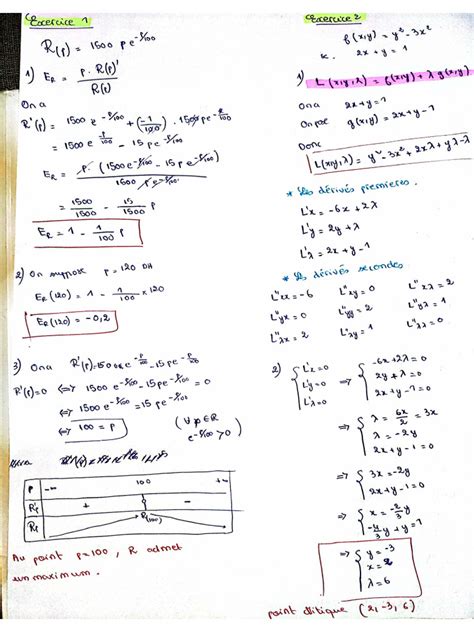 Exercice 1
R(p) = 1500 p e^-p/100
1) E_R = p. R(p)' / R(p)
On a
R'(p) = 1500 e^-p/100 + (-1/100) . 1500 p e^-p/100
= 1500 e^-p/100 - 15 p e^-p/100
E_R = p. (1500 e^-p/100 - 15 p e^-p/100) / 1500 p e^-p/100
= 1500/1500 - 15/1500 p
E_R = 1 - 1/100 p
2) On suppose p = 120 DH
E_R(120) = 1 - 1/100 × 120
E_R(120) = -0,2
3) On a R'(p) = 1500 e^-p/100 - 15 p e^-p/100
R'(p) = 0 <=> 1500 e^-p/100 - 15 p e^-p/100 = 0
<=> 1500 e^-p/100 = 15 p e^-p/100
<=> 100 = p (∀ p ∈ R e^-p/100 > 0)
p -∞ 100 +∞
R'p + 0 -
Rp R(100)
Au point p=100, R admet
un maximum.
Exercice 2
f(x,y) = y² - 3x²
s.c. 2x + y = 1
1) L(x,y,λ) = f(x,y) + λ g(x,y)
On a 2x + y = 1
On pose g(x,y) = 2x + y - 1
Donc
L(x,y,λ) = y² - 3x² + 2xλ + yλ - λ
* Les dérivés premieres.
L'x = -6x + 2λ
L'y = 2y + λ
L'λ = 2x + y - 1
* Les dérivés secondes
L''xx = -6 L''xy = 0 L''xλ = 2
L''yx = 0 L''yy = 2 L''yλ = 1
L''λx = 2 L''λy = 1 L''λλ = 0
2) { L'x = 0 L'y = 0 L'λ = 0 => { -6x + 2λ = 0 2y + λ = 0 2x + y - 1 = 0
=> { λ = 6x/2 = 3x λ = -2y 2x + y - 1 = 0
=> { 3x = -2y 2x + y - 1 = 0
=> { x = -2/3 y -4/3 y + y = 1
=> { y = -3 x = 2 λ = 6
point critique (2, -3, 6)